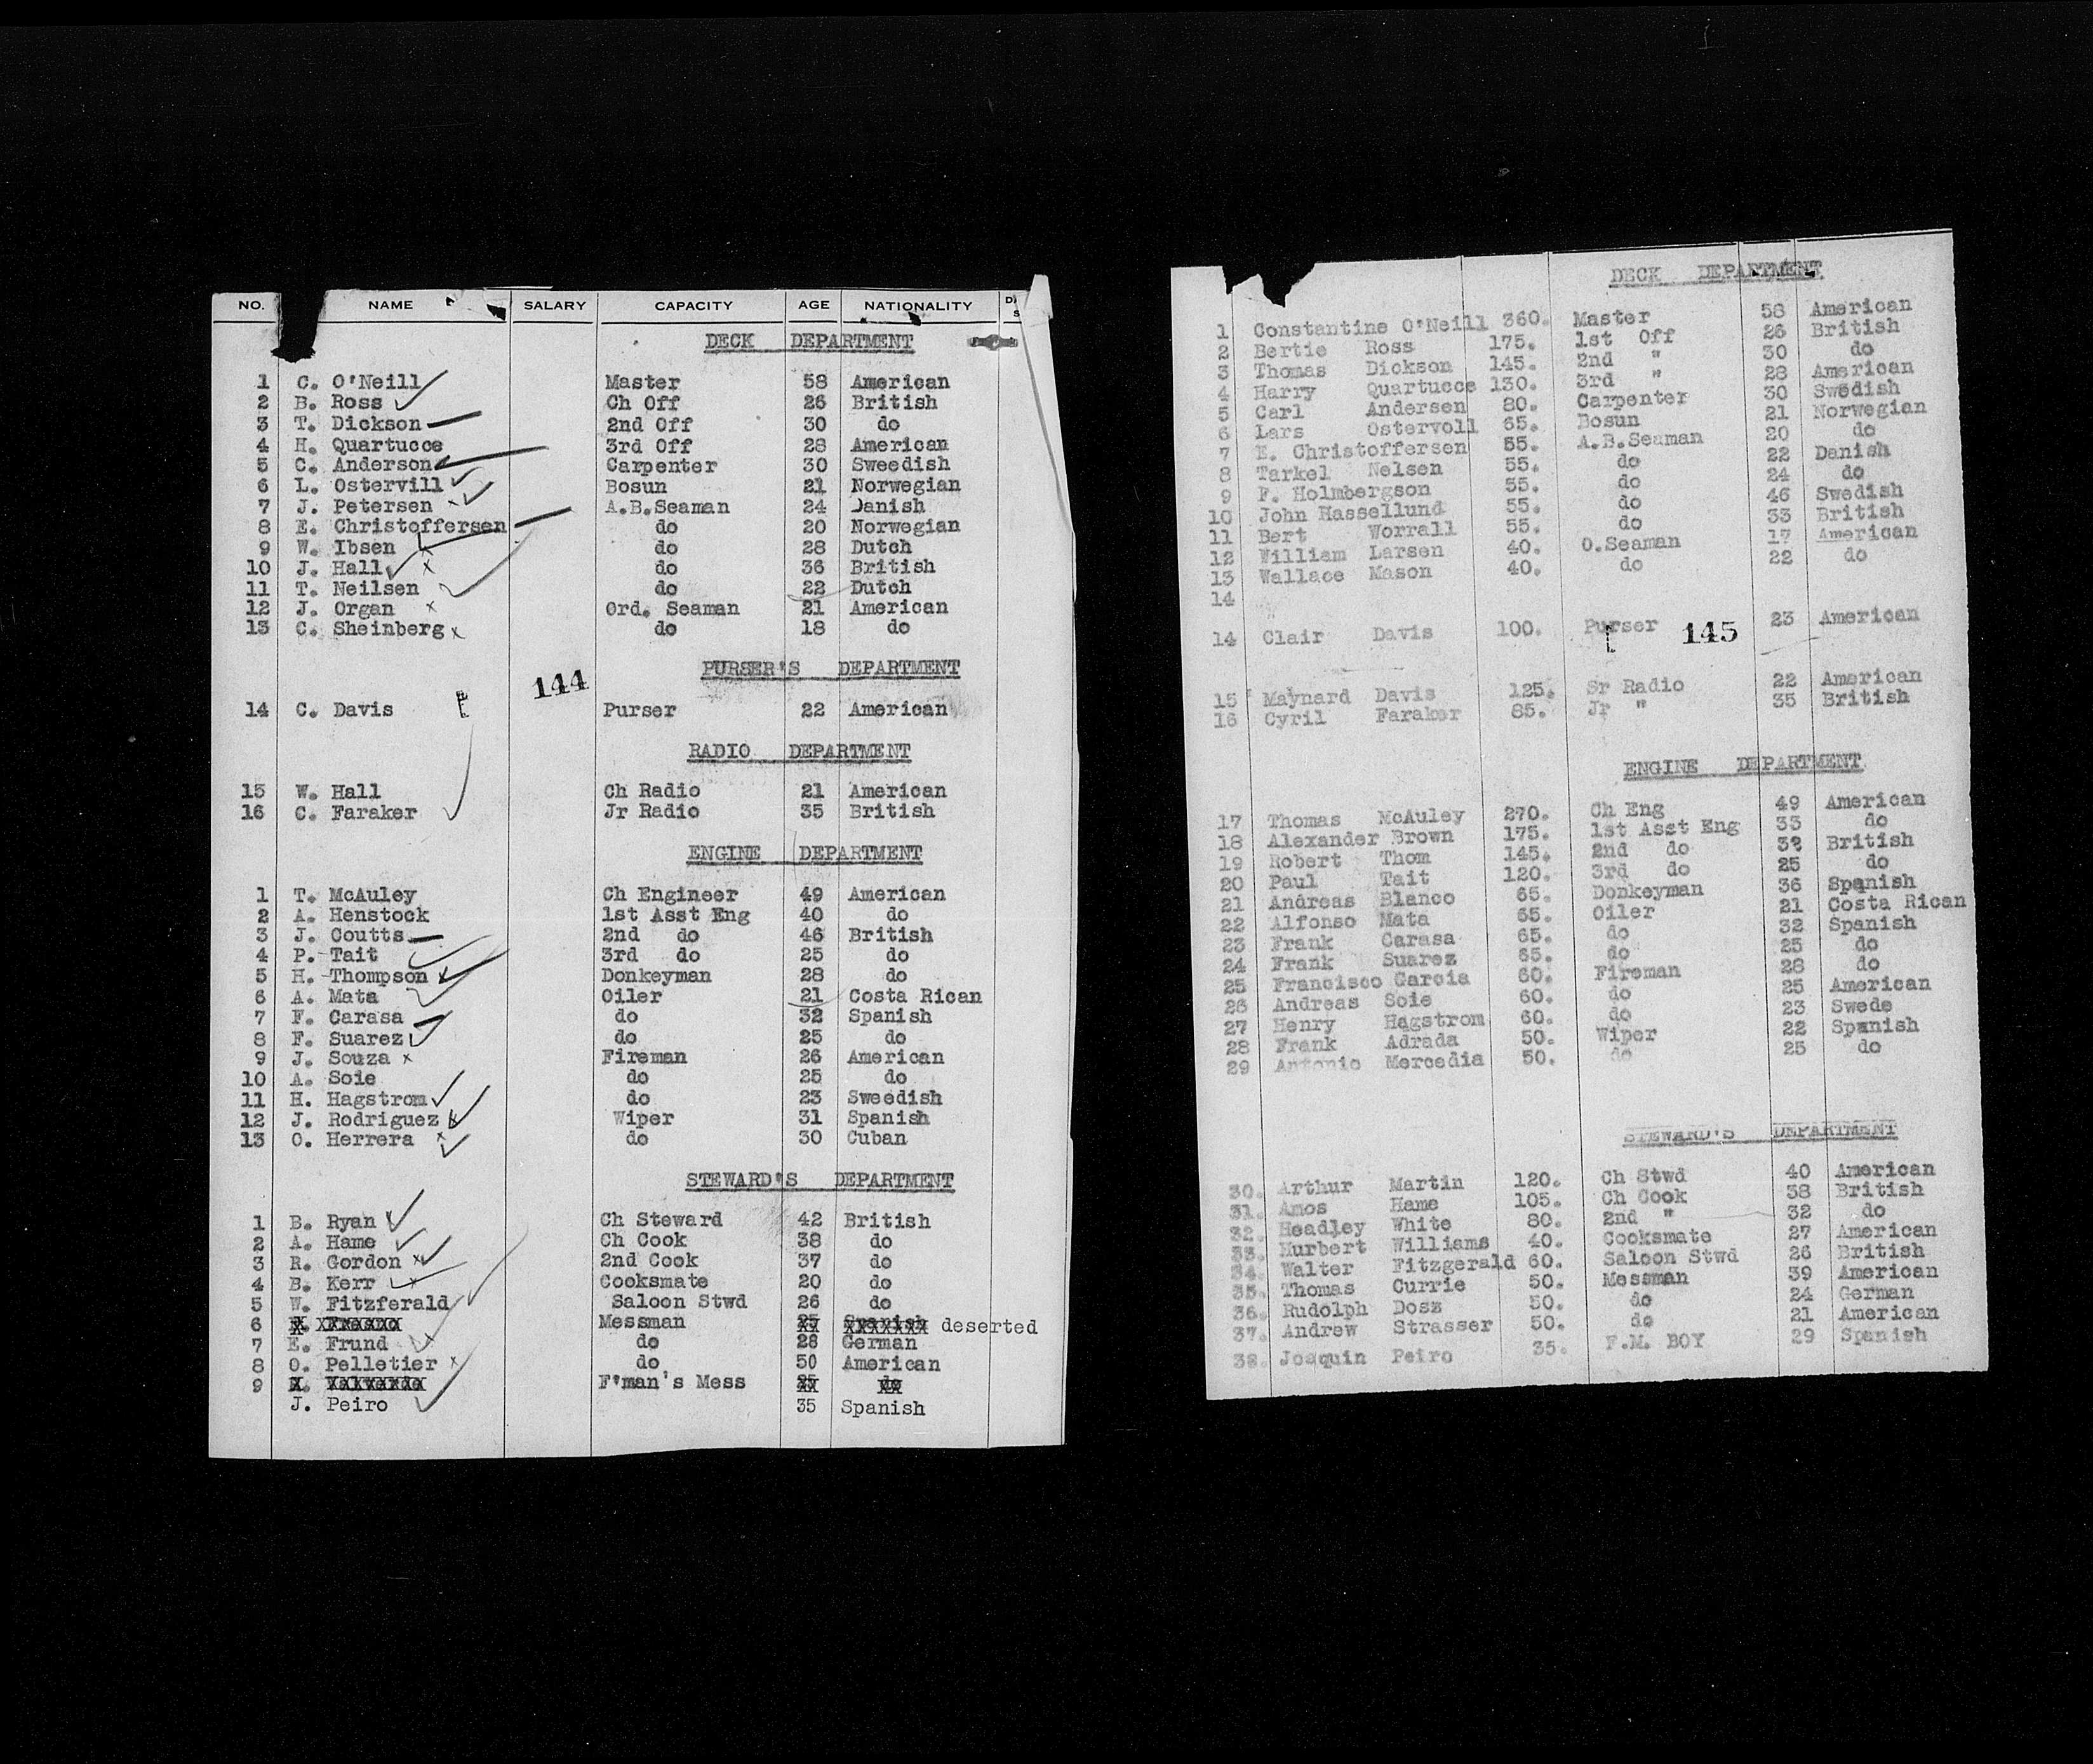 NO. NAME SALARY CAPACITY AGE NATIONALITY
DECK DEPARTMENT
1 C. O'Neill Master 58 American
2 B. Ross Ch Off 26 British
3 T. Dickson 2nd Off 30 do
4 H. Quartucce 3rd Off 28 American
5 C. Anderson Carpenter 30 Sweedish
6 L. Ostervill Bosun 21 Norwegian
7 J. Petersen A.B.Seaman 24 Danish
8 E. Christoffersen do 20 Norwegian
9 W. Ibsen do 28 Dutch
10 J. Hall do 36 British
11 T. Neilsen do 22 Dutch
12 J. Organ Ord. Seaman 21 American
13 C. Sheinberg do 18 do
PURSER'S DEPARTMENT
144
14 C. Davis Purser 22 American
RADIO DEPARTMENT
15 W. Hall Ch Radio 21 American
16 C. Faraker Jr Radio 35 British
ENGINE DEPARTMENT
1 T. McAuley Ch Engineer 49 American
2 A. Henstock 1st Asst Eng 40 do
3 J. Coutts 2nd do 46 British
4 P. Tait 3rd do 25 do
5 H. Thompson Donkeyman 28 do
6 A. Mata Oiler 21 Costa Rican
7 F. Carasa do 32 Spanish
8 F. Suarez do 25 do
9 J. Souza Fireman 26 American
10 A. Soie do 25 do
11 H. Hagstrom do 23 Sweedish
12 J. Rodriguez Wiper 31 Spanish
13 O. Herrera do 30 Cuban
STEWARD'S DEPARTMENT
1 B. Ryan Ch Steward 42 British
2 A. Hame Ch Cook 38 do
3 R. Gordon 2nd Cook 37 do
4 B. Kerr Cooksmate 20 do
5 W. Fitzferald Saloon Stwd 26 do
6 Messman 25 Spanish deserted
7 E. Frund do 28 German
8 O. Pelletier do 50 American
9 Valverde F'man's Mess 25 do
J. Peiro 35 Spanish
DECK DEPARTMENT
1 Constantine O'Neill 360. Master 58 American
2 Bertie Ross 175. 1st Off 26 British
3 Thomas Dickson 145. 2nd " 30 do
4 Harry Quartucce 130. 3rd " 28 American
5 Carl Andersen 80. Carpenter 30 Swedish
6 Lars Ostervoll 65. Bosun 21 Norwegian
7 E. Christoffersen 55. A.B.Seaman 20 do
8 Tarkel Nelsen 55. do 22 Danish
9 F. Holmbergson 55. do 24 do
10 John Hassellund 55. do 46 Swedish
11 Bert Worrall 55. do 33 British
12 William Larsen 40. O.Seaman 17 American
13 Wallace Mason 40. do 22 do
14
14 Clair Davis 100. Purser 145 23 American
15 Maynard Davis 125. Sr Radio 22 American
16 Cyril Faraker 85. Jr " 35 British
ENGINE DEPARTMENT
17 Thomas McAuley 270. Ch Eng 49 American
18 Alexander Brown 175. 1st Asst Eng 33 do
19 Robert Thom 145. 2nd do 32 British
20 Paul Tait 120. 3rd do 25 do
21 Andreas Blanco 65. Donkeyman 36 Spanish
22 Alfonso Mata 65. Oiler 21 Costa Rican
23 Frank Carasa 65. do 32 Spanish
24 Frank Suarez 65. do 25 do
25 Francisco Garcia 60. Fireman 28 do
26 Andreas Soie 60. do 25 American
27 Henry Hagstrom 60. do 23 Swede
28 Frank Adrada 50. Wiper 22 Spanish
29 Antonio Mercedia 50. do 25 do
STEWARD'S DEPARTMENT
30. Arthur Martin 120. Ch Stwd 40 American
31. Amos Hame 105. Ch Cook 38 British
32. Headley White 80. 2nd " 32 do
33. Hurbert Williams 40. Cooksmate 27 American
34. Walter Fitzgerald 60. Saloon Stwd 26 British
35. Thomas Currie 50. Messman 39 American
36. Rudolph Dosz 50. do 24 German
37. Andrew Strasser 50. do 21 American
38. Joaquin Peiro 35. F.M. BOY 29 Spanish